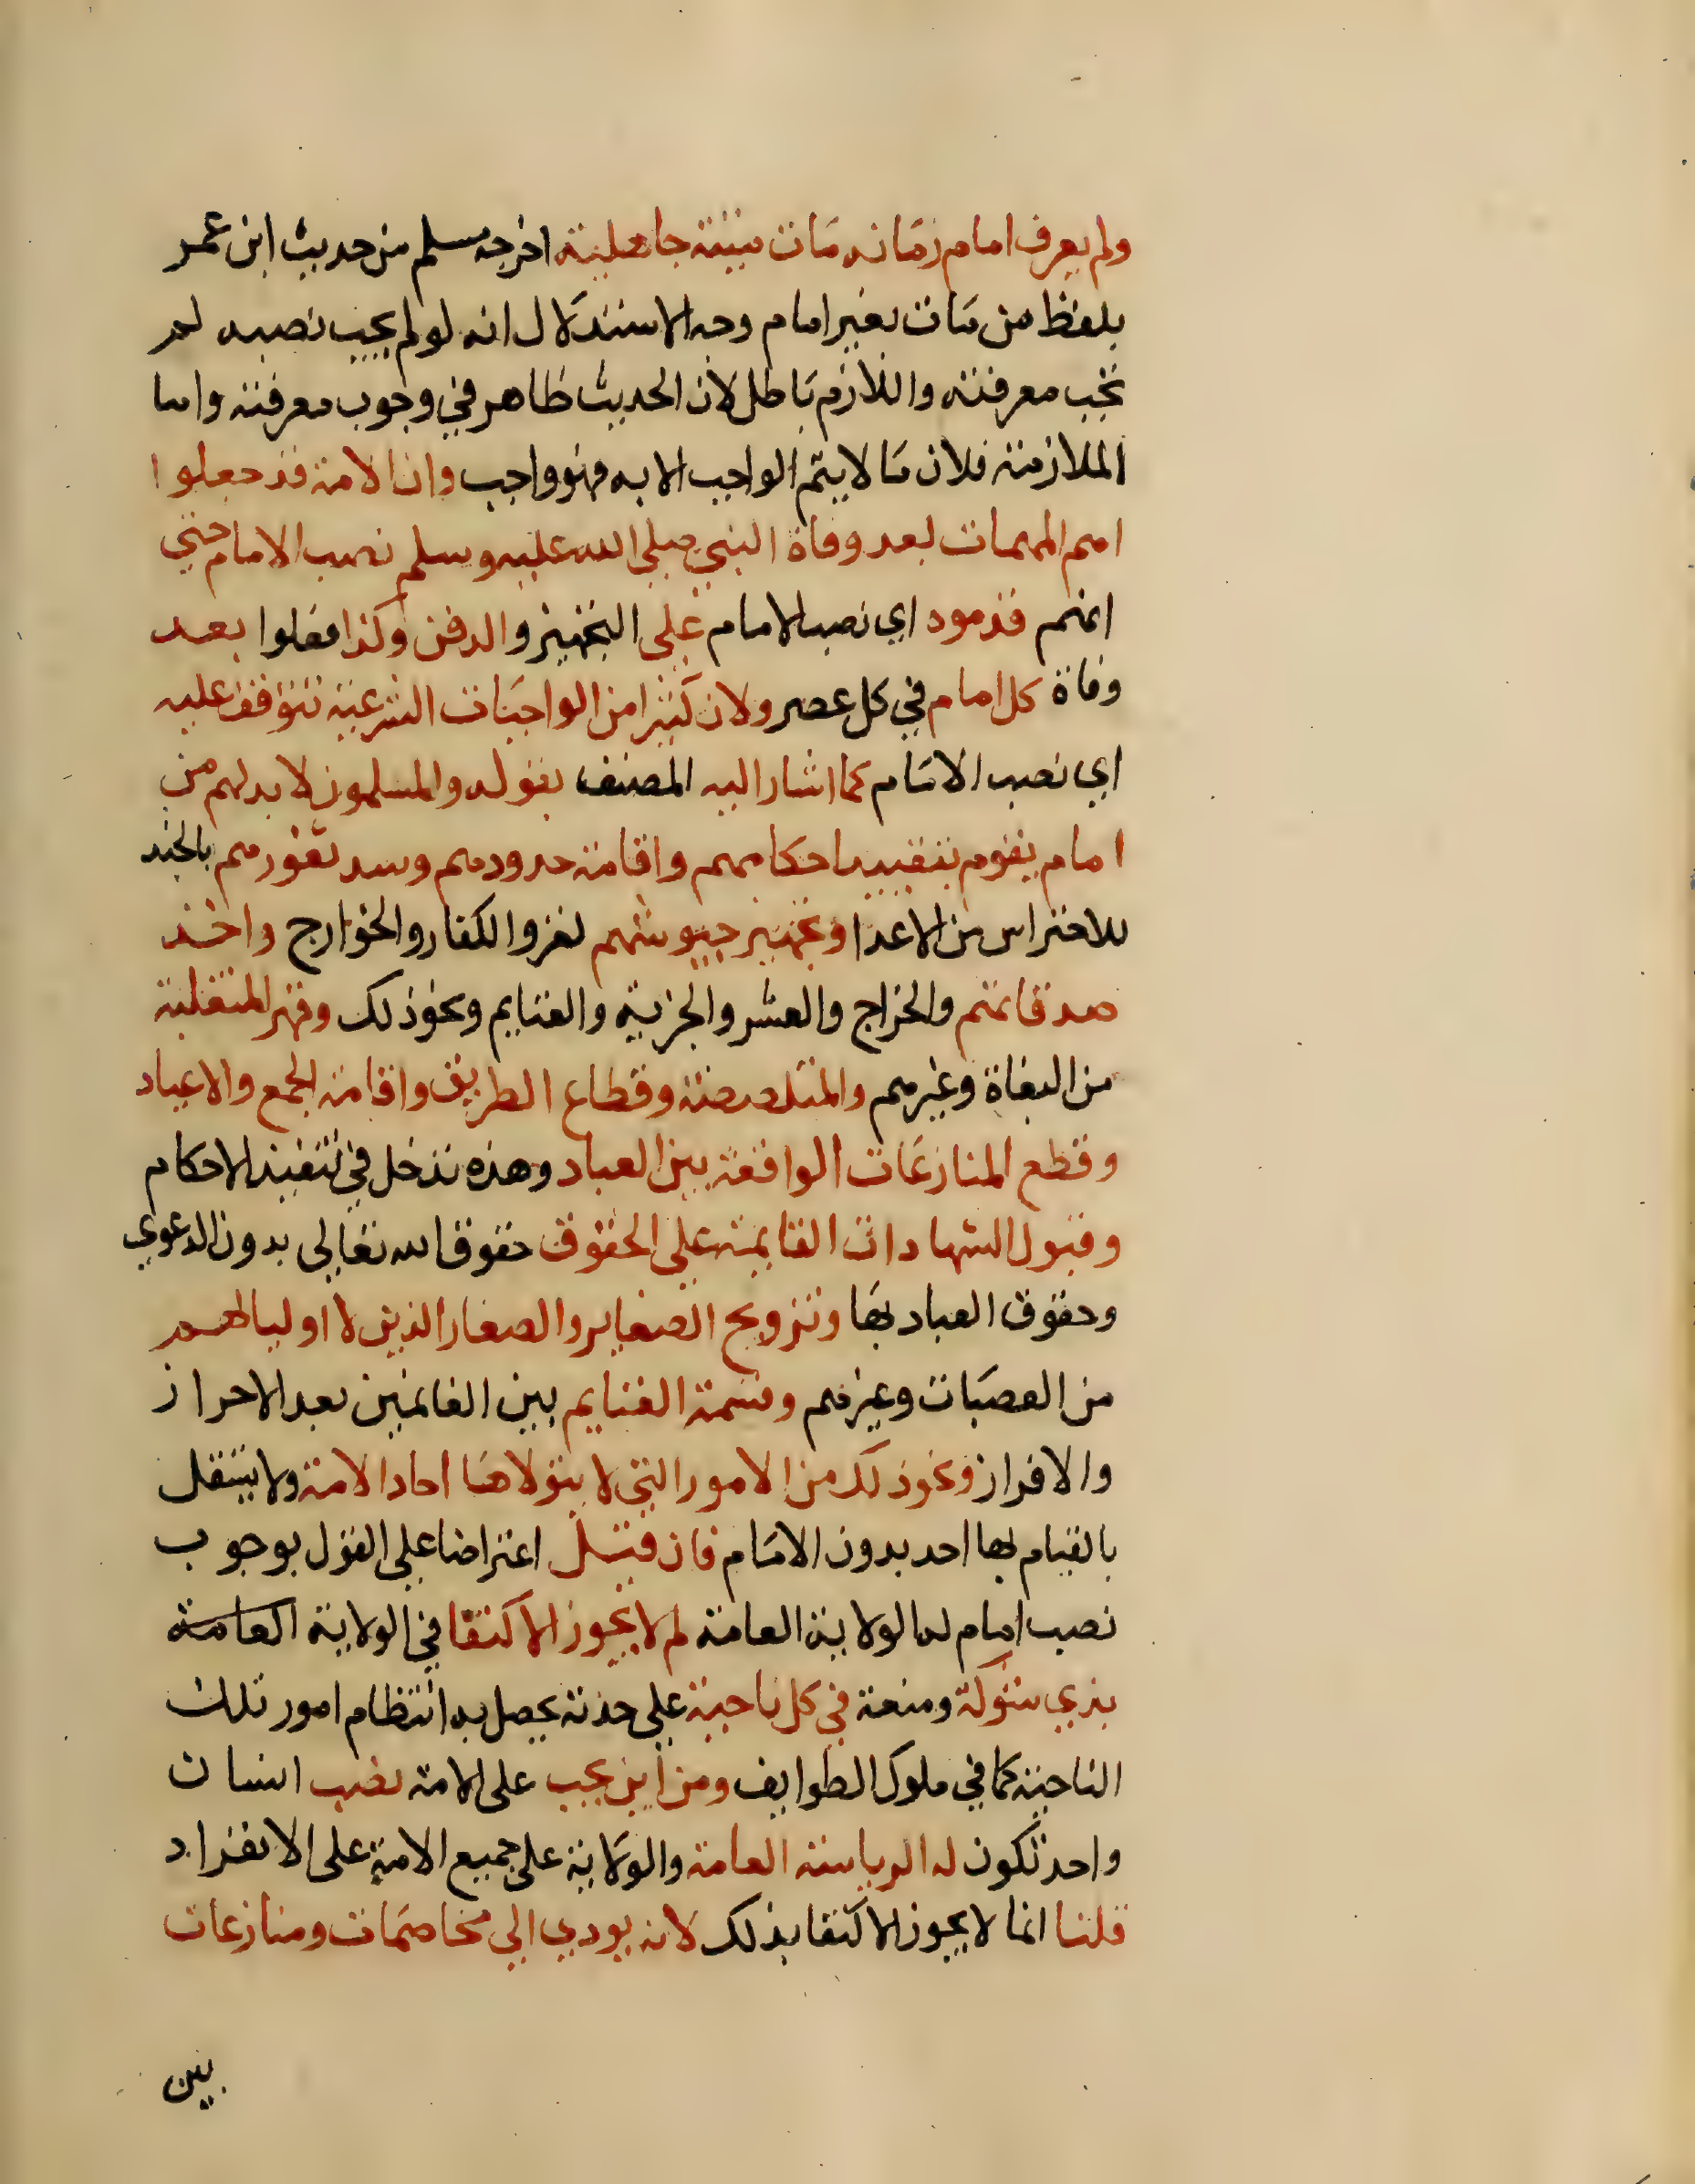 ولم يعرف امام زمانه مات ميتة جاهلية اخرجه مسلم من حديث ابن عمر
بلفظ من مات بغير امام وجه الاستدلال انه لو لم يجب نصبه لم
تجب معرفته واللازم باطل لان الحديث ظاهر في وجوب معرفته واما
الملازمة فلان ما لا يتم الواجب الا به فهو واجب وان الامة قد جعلوا
اهم المهمات بعد وفاة النبي صلى الله عليه وسلم نصب الامام حتي
انهم قدموه اي نصب الامام علي التجهيز والدفن وكذا فعلوا بعد
وفاة كل امام في كل عصر ولان كثيرا من الواجبات الشرعية تتوقف عليه
اي نصب الامام كما اشار اليه المصنف بقوله والمسلمون لا بد لهم من
امام يقوم بتنفيذ احكامهم واقامة حدودهم وسد ثغورهم بالجند
للاحتراس من الاعدا وتجهيز جيوشهم لغزو الكفار والخوارج واخذ
صدقاتهم والخراج والعشر والجزية والغنايم ونحو ذلك وقهر المتغلبة
من البغاة وغيرهم والمتلصصة وقطاع الطريق واقامة الجمع والاعياد
وقطع المنازعات الواقعة بين العباد وهذه تدخل في تنفيذ الاحكام
وقبول الشهادات القايمة علي الحقوق حقوق الله تعالي بدون الدعوي
وحقوق العباد بها وتزويج الصغاير والصغار الذين لا اوليا لهم
من العصبات وغيرهم وقسمة الغنايم بين الغانمين بعد الاحراز
والافراز ونحو ذلك من الامور التي لا يتولاها احاد الامة ولا يستقل
بالقيام بها احد بدون الامام فان قيل اعتراضا علي القول بوجوب
نصب امام له الولاية العامة لم لا يجوز الاكتفا في الولاية العامة
بذي شوكة ومنعة في كل ناحية علي حدته يحصل به انتظام امور تلك
الناحية كما في ملوك الطوايف ومن اين يجب علي الامة نصب انسان
واحد تكون له الرياسة العامة والولاية علي جميع الامة علي الانفراد
قلنا انما لا يجوز الاكتفا بذلك لانه يودي الي مخاصمات ومنازعات
بين